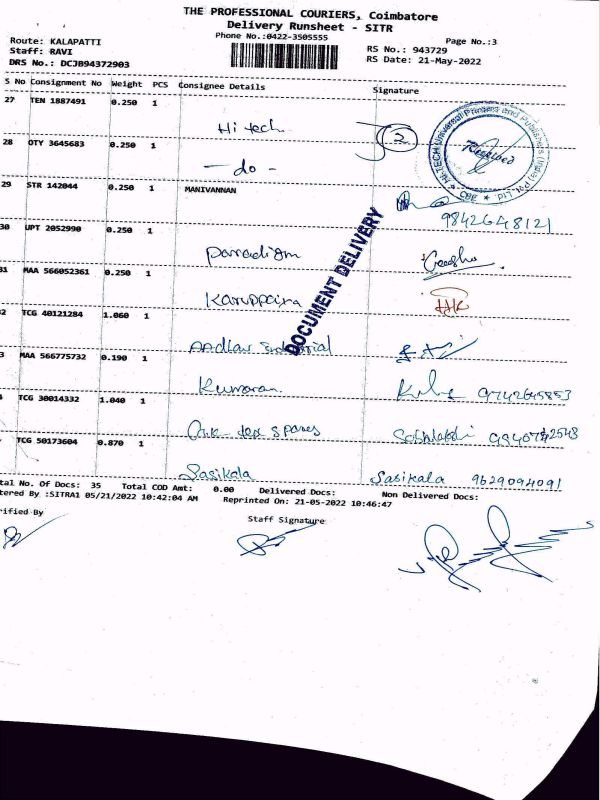 THE PROFESSIONAL COURIERS, Coimbatore
Delivery Runsheet - SITR
Phone No.:0422-3505555
Page No.:3
Route: KALAPATTI
Staff: RAVI
RS No.: 943729
DRS No.: DCJB94372903
RS Date: 21-May-2022
S No Consignment No Weight PCS Consignee Details Signature
27 TEN 1887491 0.250 1
Hi tech 2
28 OTY 3645683 0.250 1
- do -
29 STR 142044 0.250 1 MANIVANNAN
9842648121
30 UPT 2052990 0.250 1
Paradigm
31 MAA 566052361 0.250 1
Karuppaiya
2 TCG 40121284 1.060 1
3 MAA 566775732 0.190 1
Kumaran
TCG 30014332 1.040 1
spares
TCG 50173604 0.870 1
Sasikala Sasikala 9629094091
tal No. Of Docs: 35 Total COD Amt: 0.00 Delivered Docs: Non Delivered Docs:
tered By :SITRA1 05/21/2022 10:42:04 AM Reprinted On: 21-05-2022 10:46:47
rified By
Staff Signature
DOCUMENT DELIVERY
HI-TECH Universal Printers and Publishers (India) Pvt. Ltd.
Received